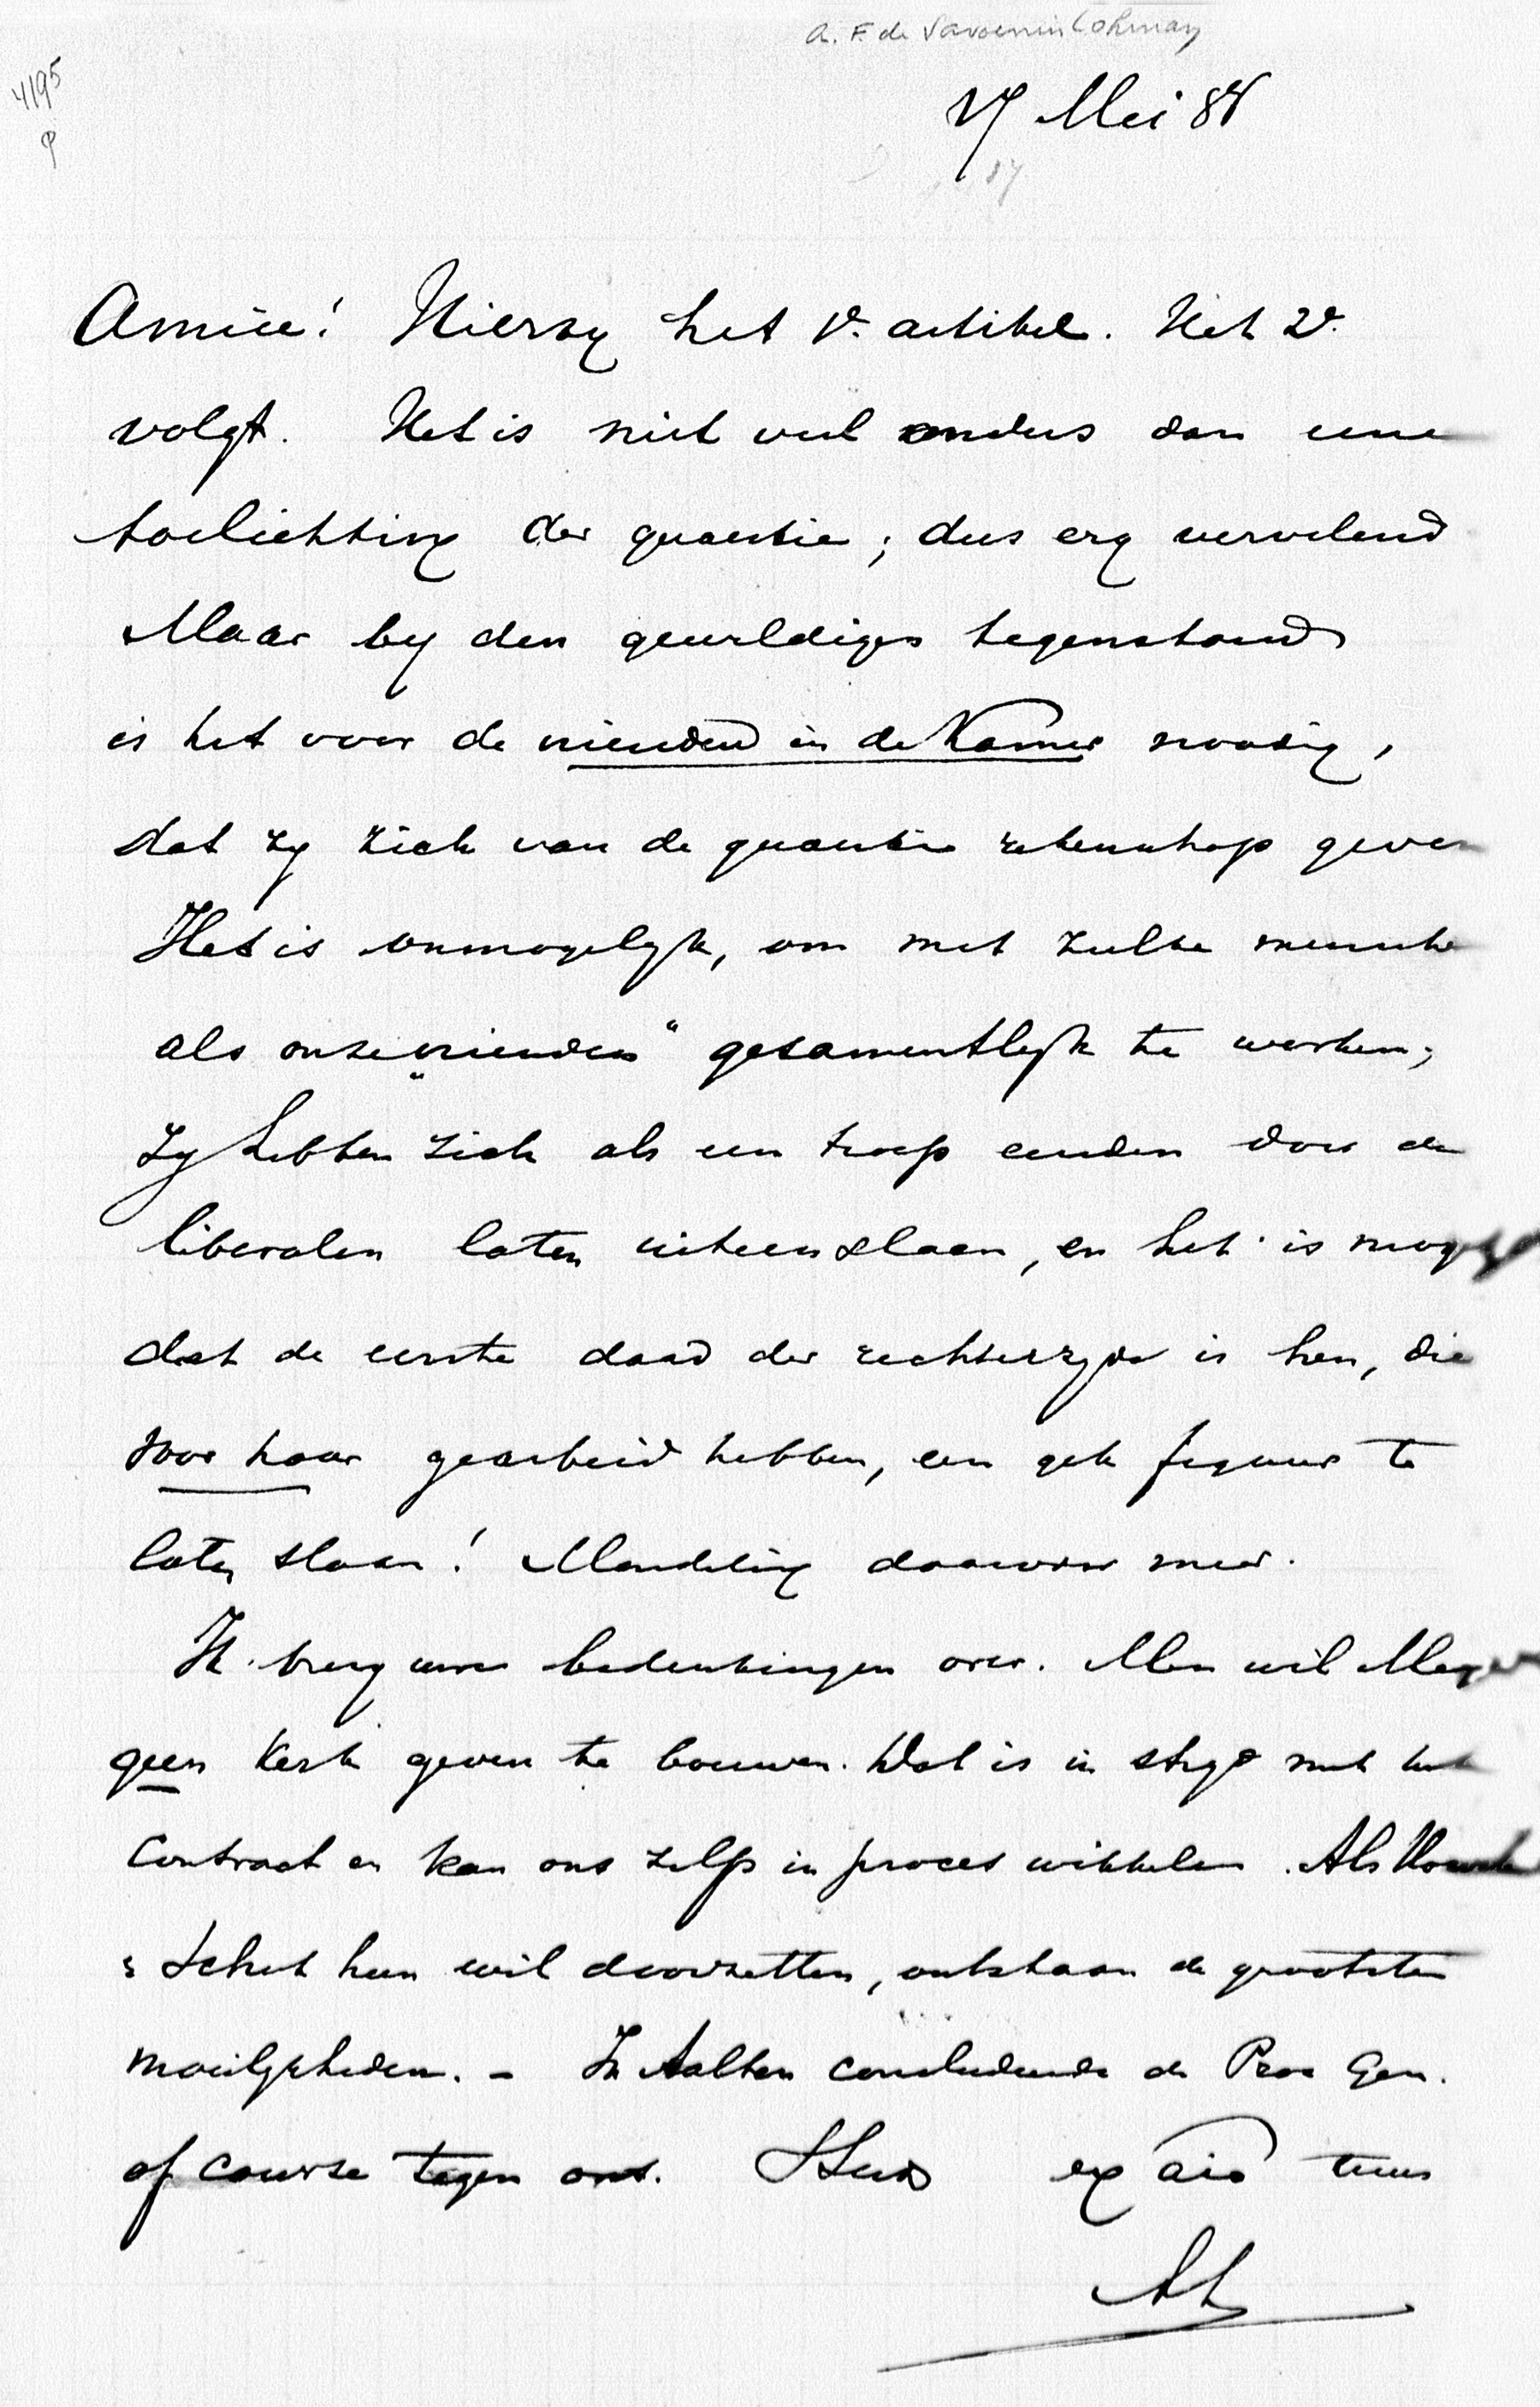 A. F. de Savornin Lohman
4195
φ
17 Mei 88
87
Amice! Hierby het 1e. artikel. Het 2e.
volgt. Het is niet veel anders dan eene
toelichting der quaestie; dus erg vervelend
Maar by den geweldigen tegenstand
is het voor de vrienden in de Kamer noodig,
dat zy zich van de quaestie rekenschap geven
Het is onmogelyk, om met zulke mensche
als onze „vrienden" gezamentlyk te werken;
Zy hebben zich als een troep eenden door de
liberalen laten uiteenslaan, en het is mogelyk
dat de eerste daad der rechterzyde is hen, die
voor haar gearbeid hebben, een gek figuur te
laten slaan! Mondeling daarover meer.
Ik breng uwe bedenkingen over. Men wil
geen Kerk geven te bouwen. Dat is in stryd met het
Contract en kan ons zelfs in proces wikkelen. Als
& Schut hun wil doorzetten, ontstaan de grootste
moeilykheden. - In Aalten concludeerde de Proc Gen.
of course tegen ons. tuus
AL